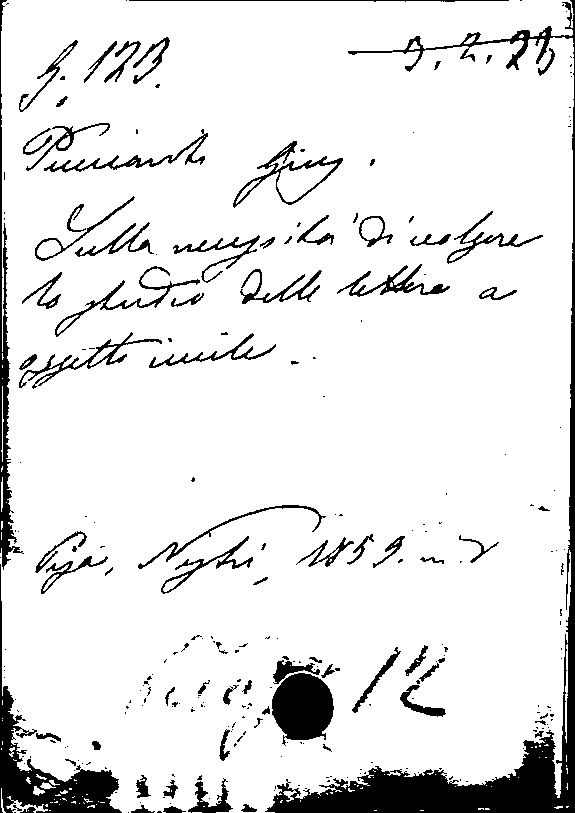 G. 123.
3. 2. 23
Pucciaⁿti Gius.
Sulla necessità di volgere
lo studio delle lettere a
oggetto civile.
Pisa, Nistri, 1859. in 8
12